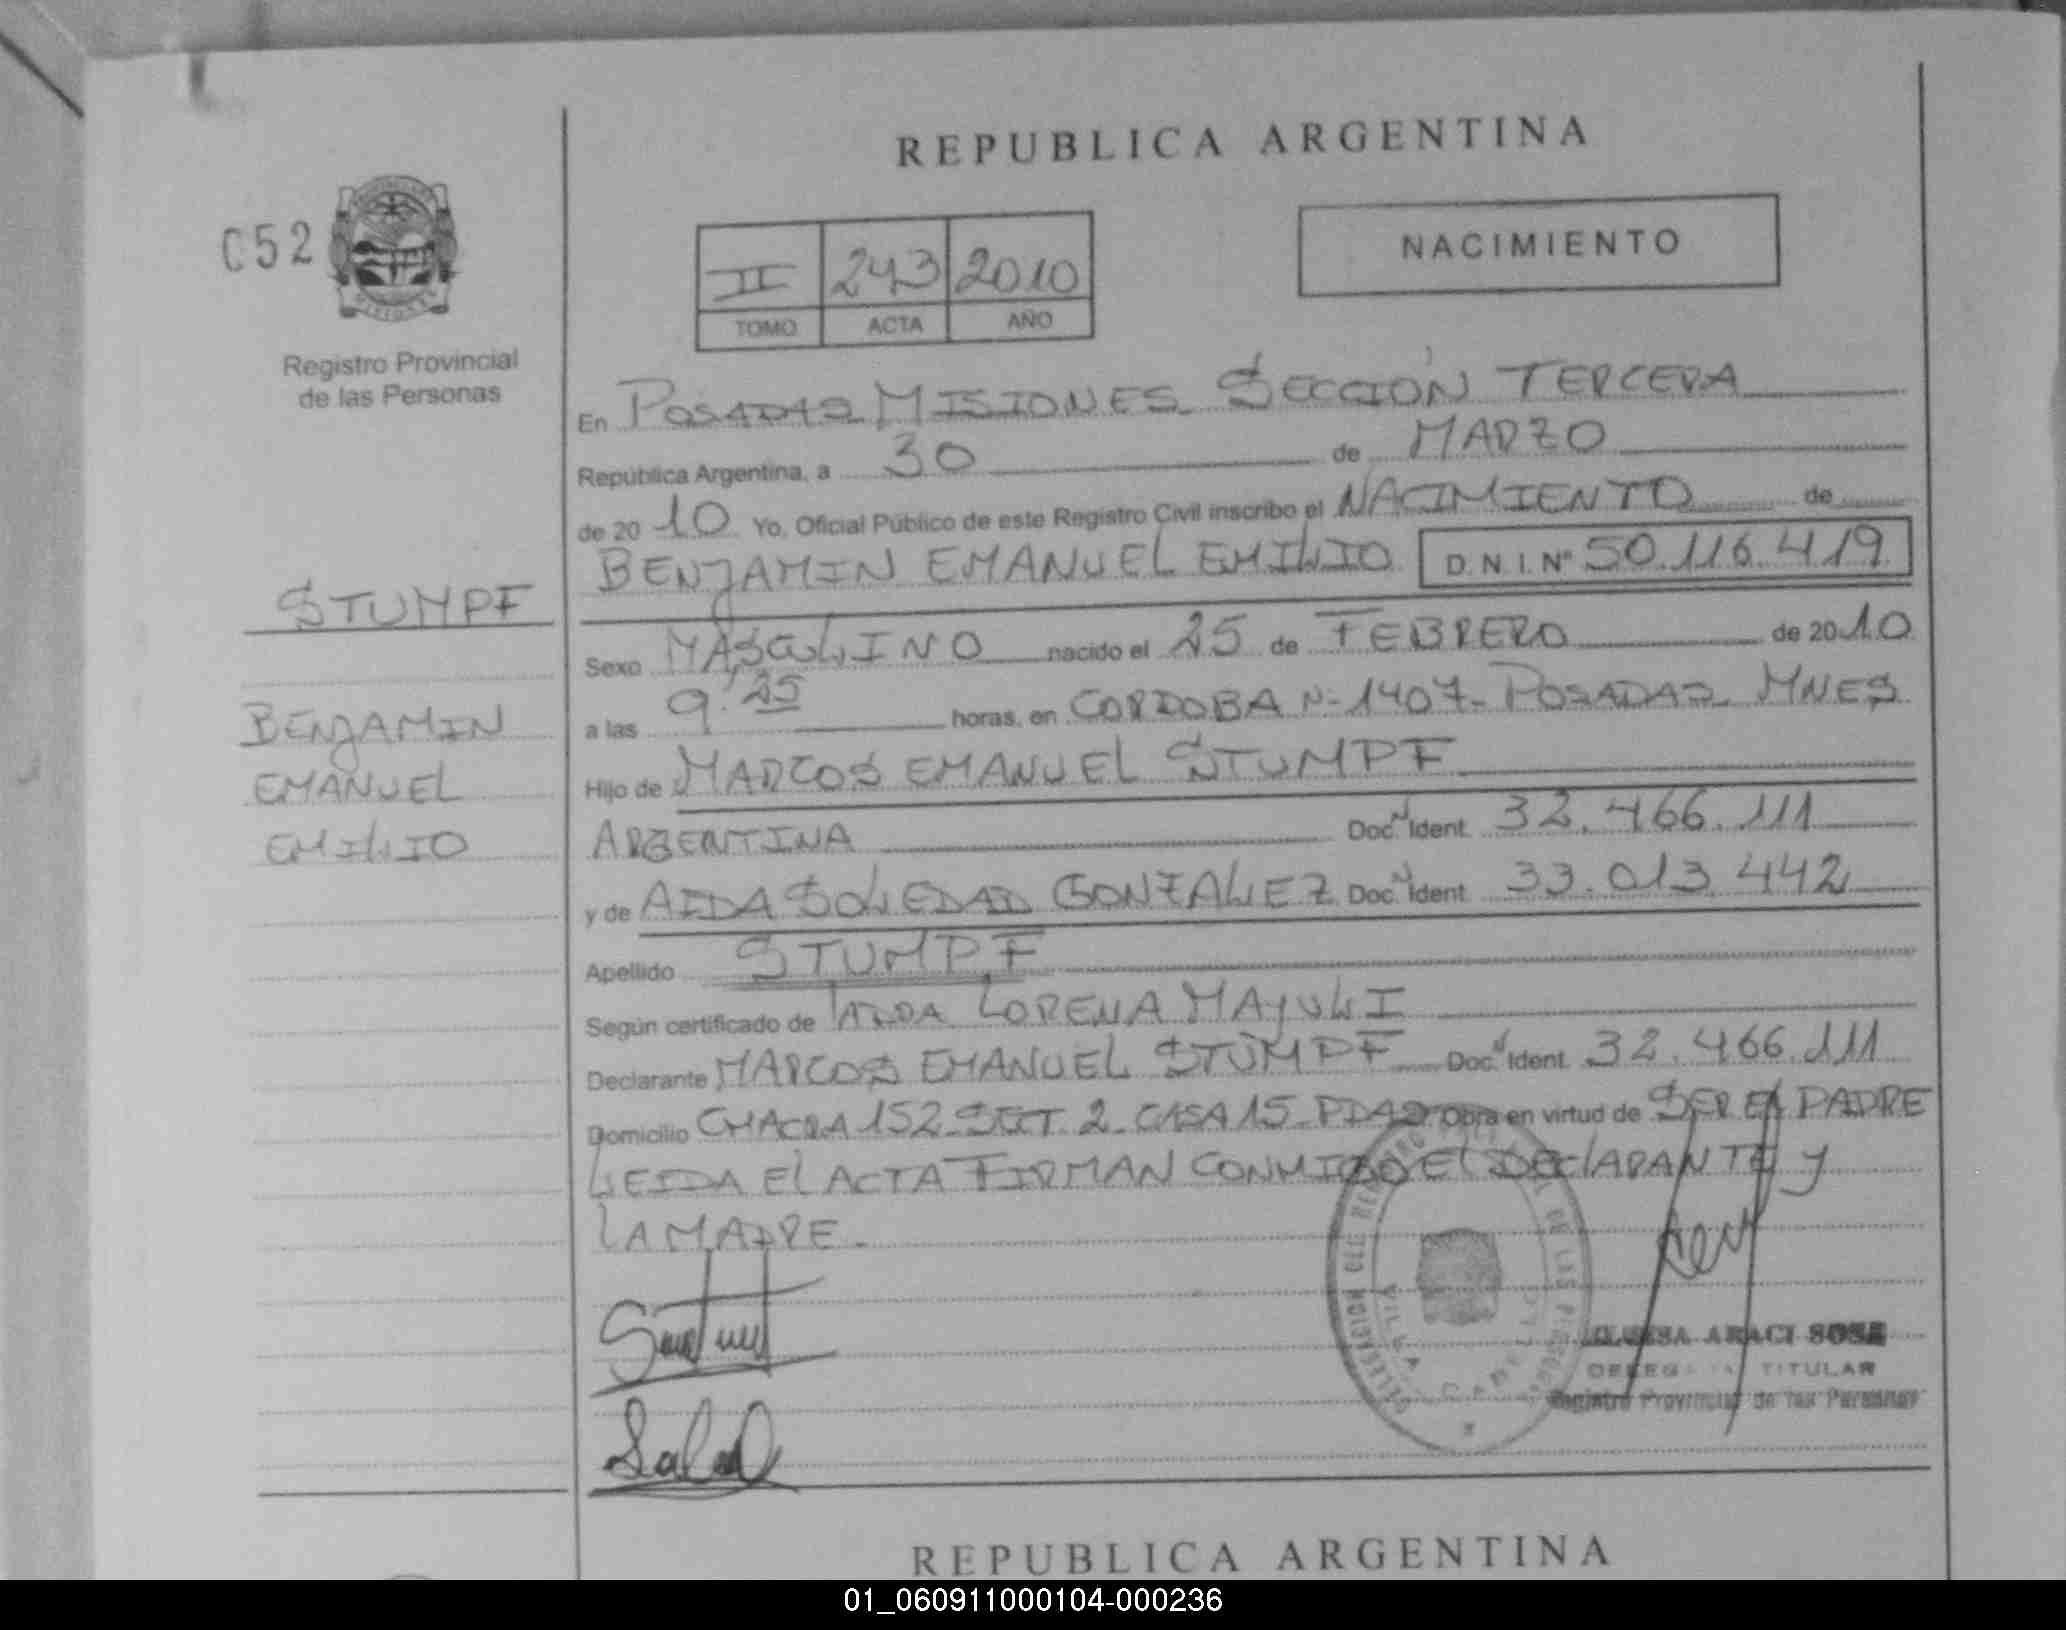 REPUBLICA ARGENTINA
C52
NACIMIENTO
II 243 2010
TOMO ACTA AÑO
Registro Provincial
de las Personas
En POSADAS MISIONES SECCIÓN TERCERA
República Argentina, a 30 de MARZO
de 2010 Yo, Oficial Público de este Registro Civil inscribo el NACIMIENTO de
BENJAMIN EMANUEL EMILIO D.N.I. Nº 50.116.419
STUMPF
BENJAMIN
EMANUEL
EMILIO
Sexo MASCULINO nacido el 25 de FEBRERO de 2010
a las 9:25 horas, en CORDOBA Nº 1407- POSADAS MNES
Hijo de MARCOS EMANUEL STUMPF
ARGENTINA Doc. Ident. 32.466.111
y de AIDA SOLEDAD GONZALEZ Doc. Ident. 33.013.442
Apellido STUMPF
Según certificado de LORENA MAYULI
Declarante MARCOS EMANUEL STUMPF Doc. Ident. 32.466.111
Domicilio CHACRA 152-SET. 2-CASA 15-PDAS Obra en virtud de SER EL PADRE
LEIDA El ACTA FIRMAN CONMIGO El DEClARANTE y
LA MADRE.
DELEGACION DEL REGISTRO DE LAS PERSONAS
VILLA CABELLO
ARACI SOSA
DELEGADA TITULAR
Registro Provincial de las Personas
REPUBLICA ARGENTINA
01_060911000104-000236